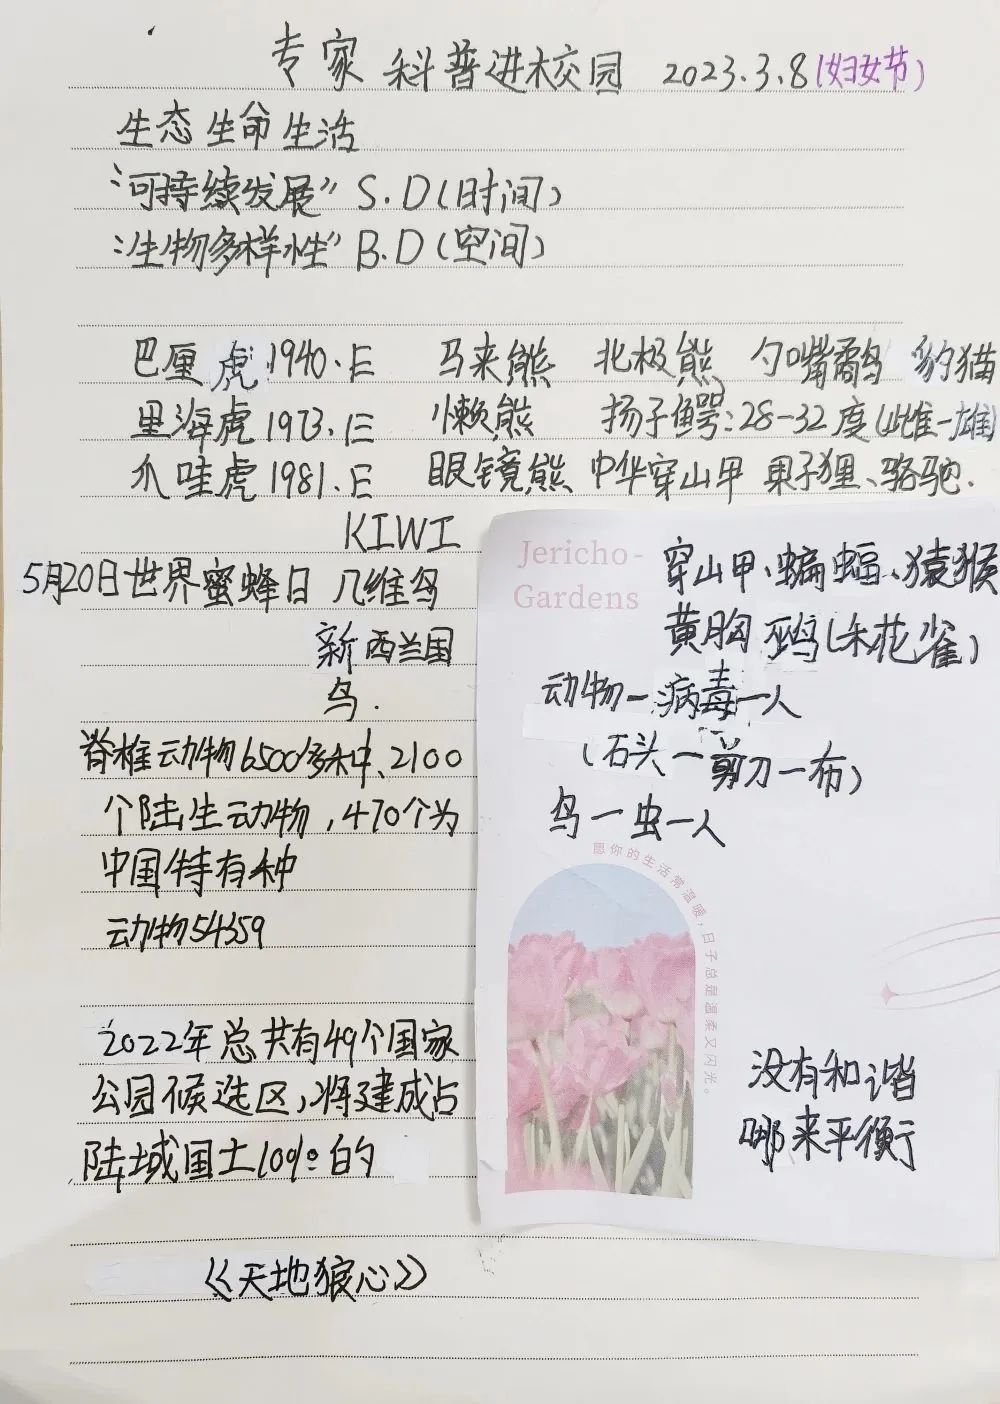 专家科普进校园 2023.3.8(妇女节)
生态 生命 生活
"可持续发展" S.D(时间)
"生物多样性" B.D(空间)
巴厘虎 1940.E 马来熊 北极熊 勺嘴鹬 豹猫
里海虎 1973.E 懒熊 扬子鳄:28-32度(雌-雄)
爪哇虎 1981.E 眼镜熊 中华穿山甲 果子狸、骆驼.
KIWI
5月20日世界蜜蜂日 几维鸟
新西兰国
鸟.
脊椎动物6500多种、2100
个陆生动物,470个为
中国特有种
动物54359
2022年总共有49个国家
公园候选区,将建成占
陆域国土10%的
《天地狼心》
Jericho-
Gardens
穿山甲、蝙蝠、猿猴
黄胸鹀(禾花雀)
动物-病毒-人
(石头-剪刀-布)
鸟-虫-人
愿你的生活常温暖,日子总是温柔又闪光。
没有和谐
哪来平衡